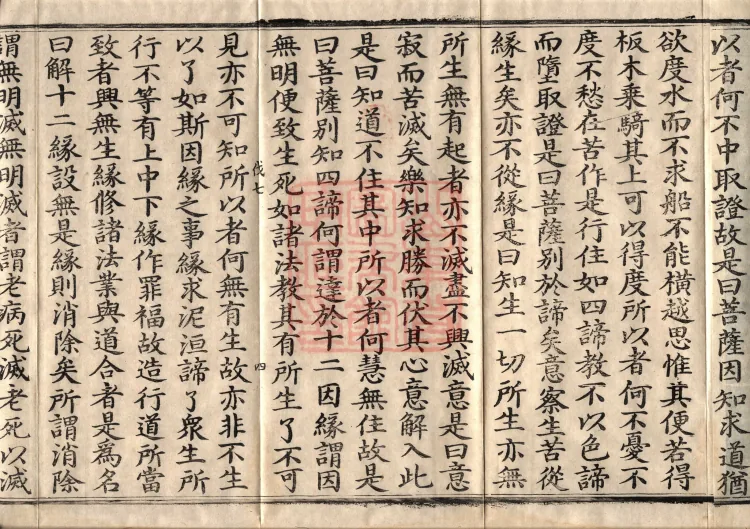 以者何不中取證故是曰菩薩因知求道猶
欲度水而不求船不能橫越思惟其便若得
板木乘騎其上可以得度所以者何不憂不
度不愁在苦作是行住如四諦教不以色諦
而墮取證是曰菩薩別於諦矣意察生苦從
緣生矣亦不從緣是曰知生一切所生亦無
所生無有起者亦不滅盡不興滅意是曰意
寂而苦滅矣樂知求勝而伏其心意解入此
是曰知道不住其中所以者何慧無住故是
曰菩薩別知四諦何謂達於十二因緣謂因
無明便致生死如諸法教其有所生了不可
伐七 四
見亦不可知所以者何無有生故亦非不生
以了如斯因緣之事緣求泥洹諦了衆生所
行不等有上中下緣作罪福故造行道所當
致者興無生緣修諸法業與道合者是爲名
曰解十二緣設無是緣則消除矣所謂消除
謂無明滅無明滅者謂老病死滅老死以滅